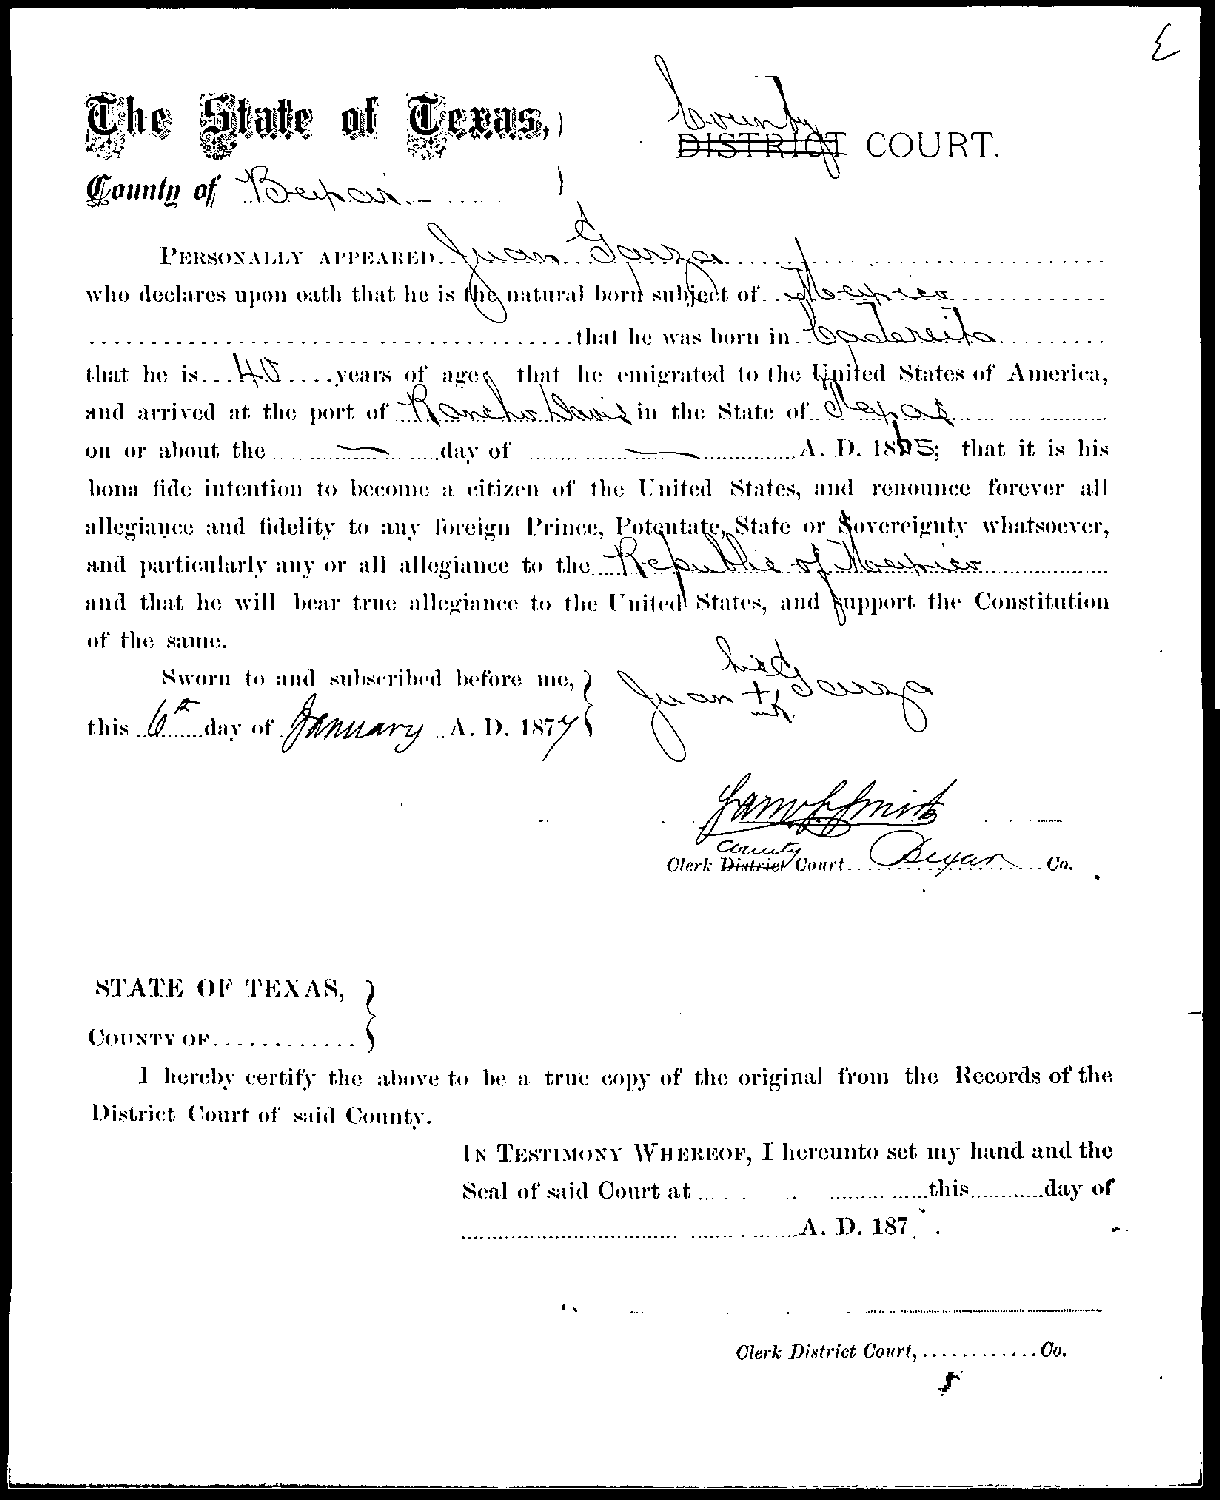 The State of Texas,
County DISTRICT COURT.
County of Bexar
PERSONALLY APPEARED Juan Garza
who declares upon oath that he is the natural born subject of Mexico
that he was born in Cadereita
that he is 45 years of age, that he emigrated to the United States of America,
and arrived at the port of Rancho Davis in the State of Texas
on or about the — day of — A. D. 1865; that it is his
bona fide intention to become a citizen of the United States, and renounce forever all
allegiance and fidelity to any foreign Prince, Potentate, State or Sovereignty whatsoever,
and particularly any or all allegiance to the Republic of Mexico
and that he will bear true allegiance to the United States, and support the Constitution
of the same.
Sworn to and subscribed before me,
this 6th day of January A. D. 1877
his
Juan + Garza
mk
Sam S Smith
Clerk District County Court Bexar Co.
STATE OF TEXAS,
COUNTY OF
I hereby certify the above to be a true copy of the original from the Records of the
District Court of said County.
IN TESTIMONY WHEREOF, I hereunto set my hand and the
Seal of said Court at this day of
A. D. 187 .
Clerk District Court, Co.